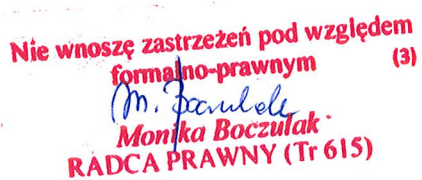 Nie wnoszę zastrzeżeń pod względem
formalno-prawnym (3)
M. Boczulak
Monika Boczulak
RADCA PRAWNY (Tr 615)